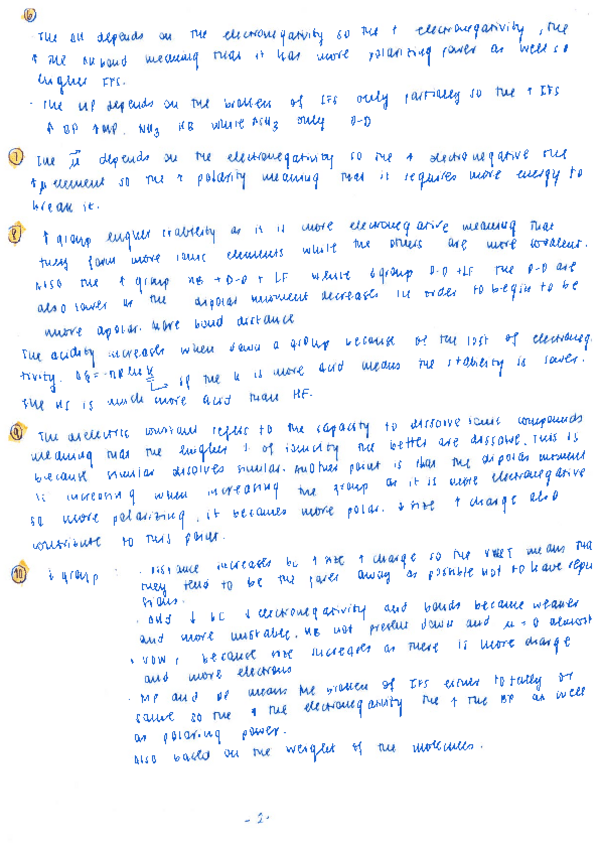 ⑥
The ΔH depends on the electronegativity so the ↑ electronegativity, the
↑ the ΔH bond meaning that it has more polarizing power as well so
higher IFS.
· The MP depends on the broken of IFS only partially so the ↑ IFS
↑ BP ↑ MP. NH3 HB while only D-D
⑦ The μ depends on the electronegativity so the ↑ electronegative the
↑ μ element so the ↑ polarity meaning that it requires more energy to
break it.
⑧ ↑ group higher stability as it is more electronegative meaning that
they form more ionic elements while the others are more covalent.
Also the ↑ group HB + D-D + LF while ↓ group D-D + LF the D-D are
also lower as the dipolar moment decreases in order to begin to be
more apolar. More bond distance
The acidity increases when down a group because of the lost of electronega
tivity. if the K is more acid means the stability is lower.
The is much more acid than HF.
⑨ The dielectric constant refers to the capacity to dissolve ionic compounds
meaning that the higher ↑ of ionicity the better are dissolve. This is
because similar dissolves similar. Another point is that the dipolar moment
is increasing when increasing the group as it is more electronegative
so more polarizing, it becomes more polar. ↓ size ↑ charge also
contribute to this point.
⑩ ↓ group · Distance increases bc ↑ size ↑ charge so the means tha
they tend to be the farer away as possible not to have repu
sions.
· ΔHd ↓ bc ↓ electronegativity and bonds became weaker
and more unstable. HB not present down and μ = 0 almost
· VDW ↑ because size increases as there is more charge
and more electrons
· MP and BP means the broken of IFS either totally or
some so the ↑ the electronegativity the ↑ the BP as well
as polaring power.
Also based on the weight of the molecules.
- 2 -